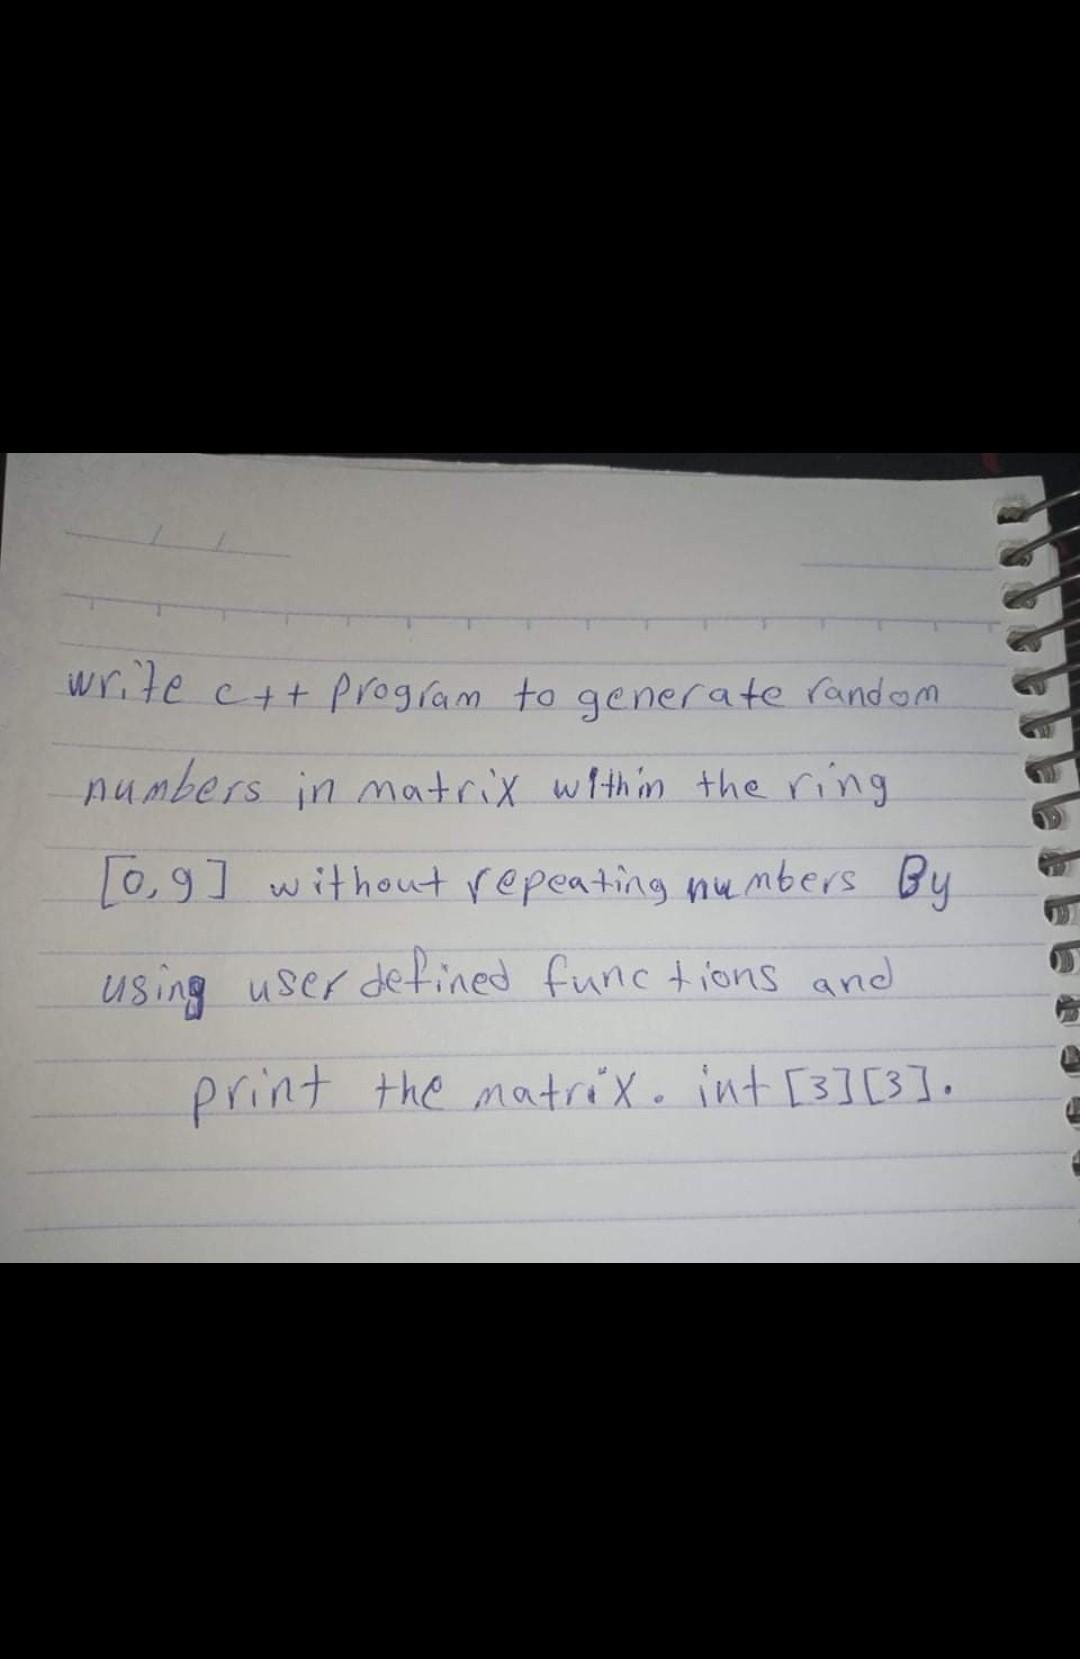 write c++ program to generate random
numbers in matrix within the ring
[0,9] without repeating numbers By
using user defined functions and
print the matrix. int [3][3].